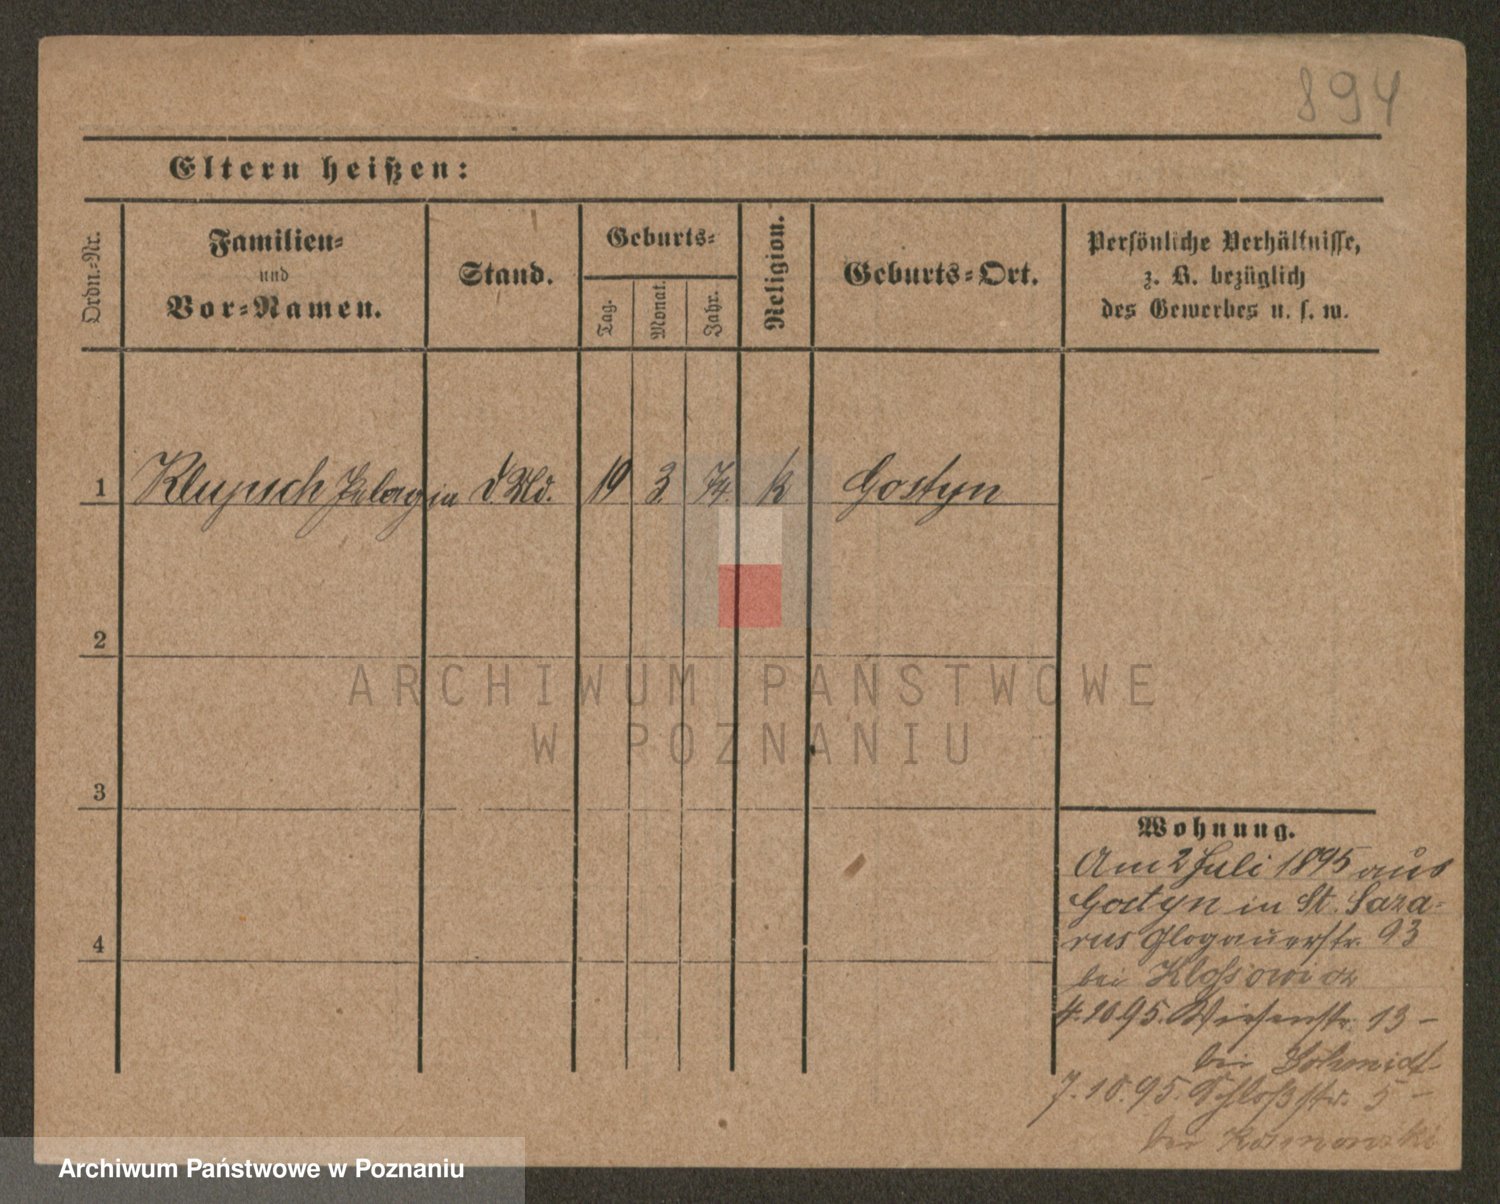 894
Eltern heißen:
Ordn.-Nr.
Familien-
und
Vor-Namen.
Stand.
Geburts-
Tag.
Monat.
Jahr.
Religion.
Geburts-Ort.
Persönliche Verhältnisse,
z. B. bezüglich
des Gewerbes u. s. w.
1 Klupsch Pelagia d. Md. 19 3 74 k Gostyn
2
3
4
Wohnung.
Am 2 Juli 1895 aus
Gostyn in St. Laza-
rus Glogauerstr. 93
bei Klossowicz
4.10.95. Wiesenstr. 13 -
bei Schmidt
7.10.95. Schloßstr. 5 -
bei
ARCHIWUM PAŃSTWOWE
W POZNANIU
Archiwum Państwowe w Poznaniu